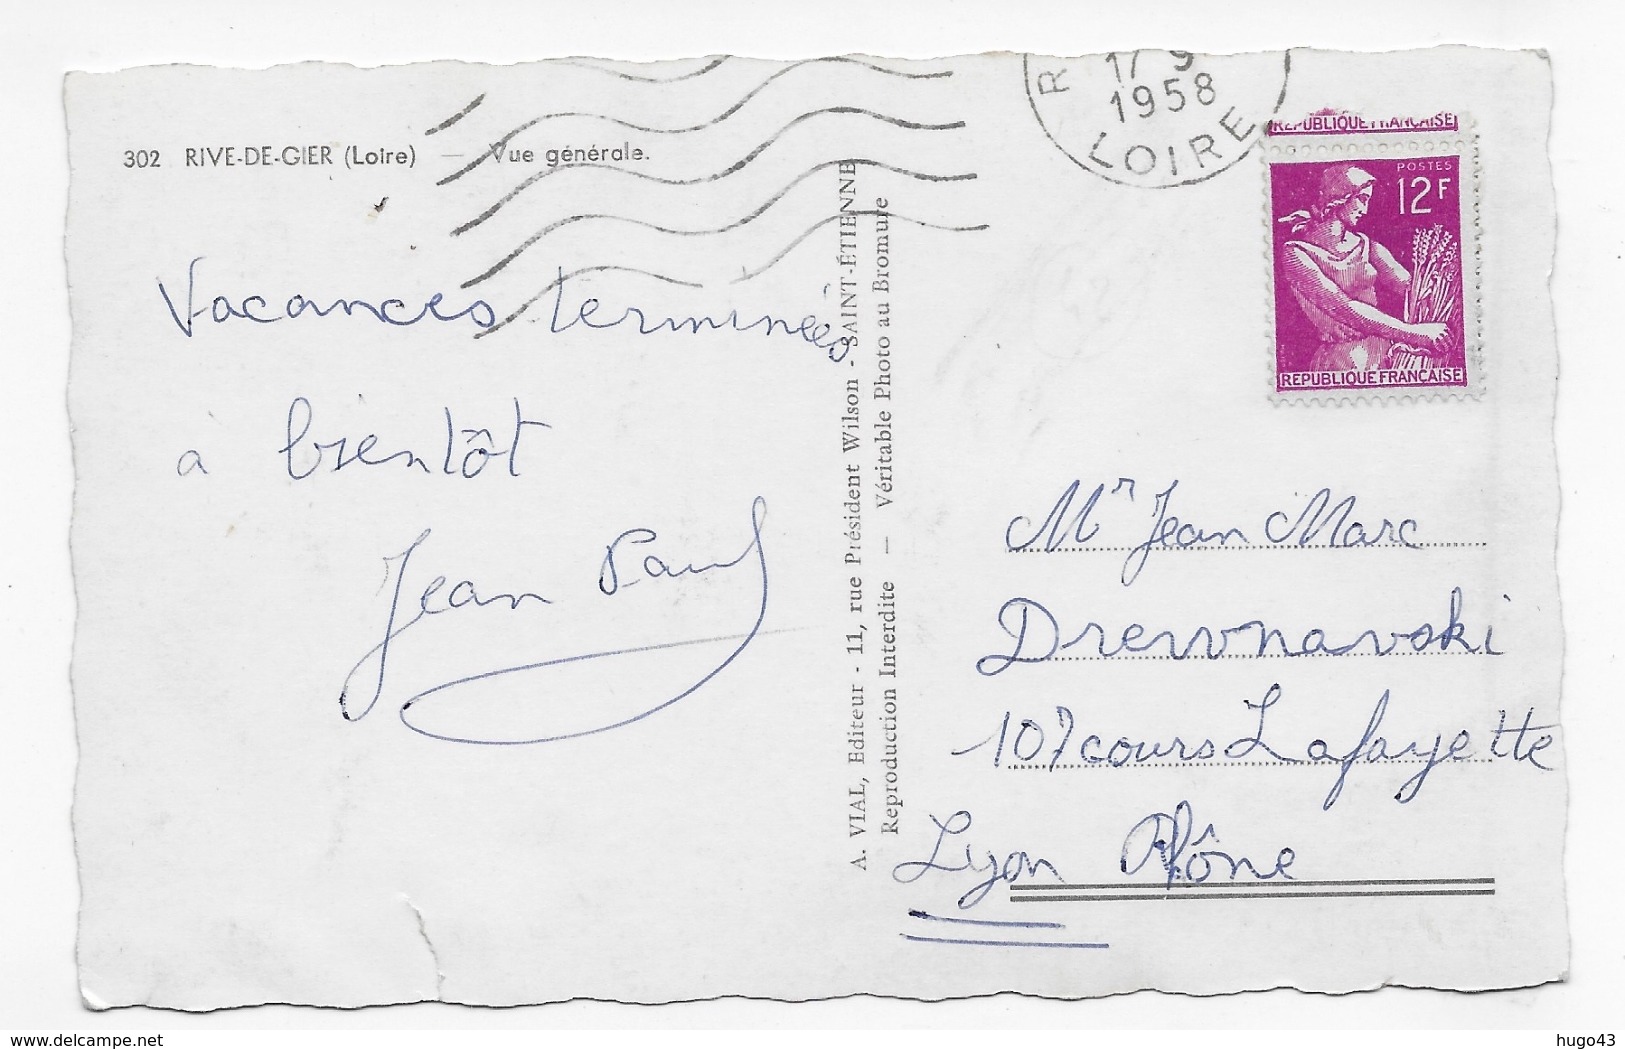 302 RIVE-DE-GIER (Loire) — Vue générale.
Vacances terminées
a bientôt
Jean Paul
A. VIAL, Editeur - 11, rue Président Wilson - SAINT-ÉTIENNE
Reproduction Interdite — Véritable Photo au Bromure
R
17 9
1958
LOIRE
REPUBLIQUE FRANÇAISE
POSTES
12F
REPUBLIQUE FRANÇAISE
Mr Jean Marc
Drewnavski
107 cours Lafayette
Lyon Rhône
delcampe.net
hugo43